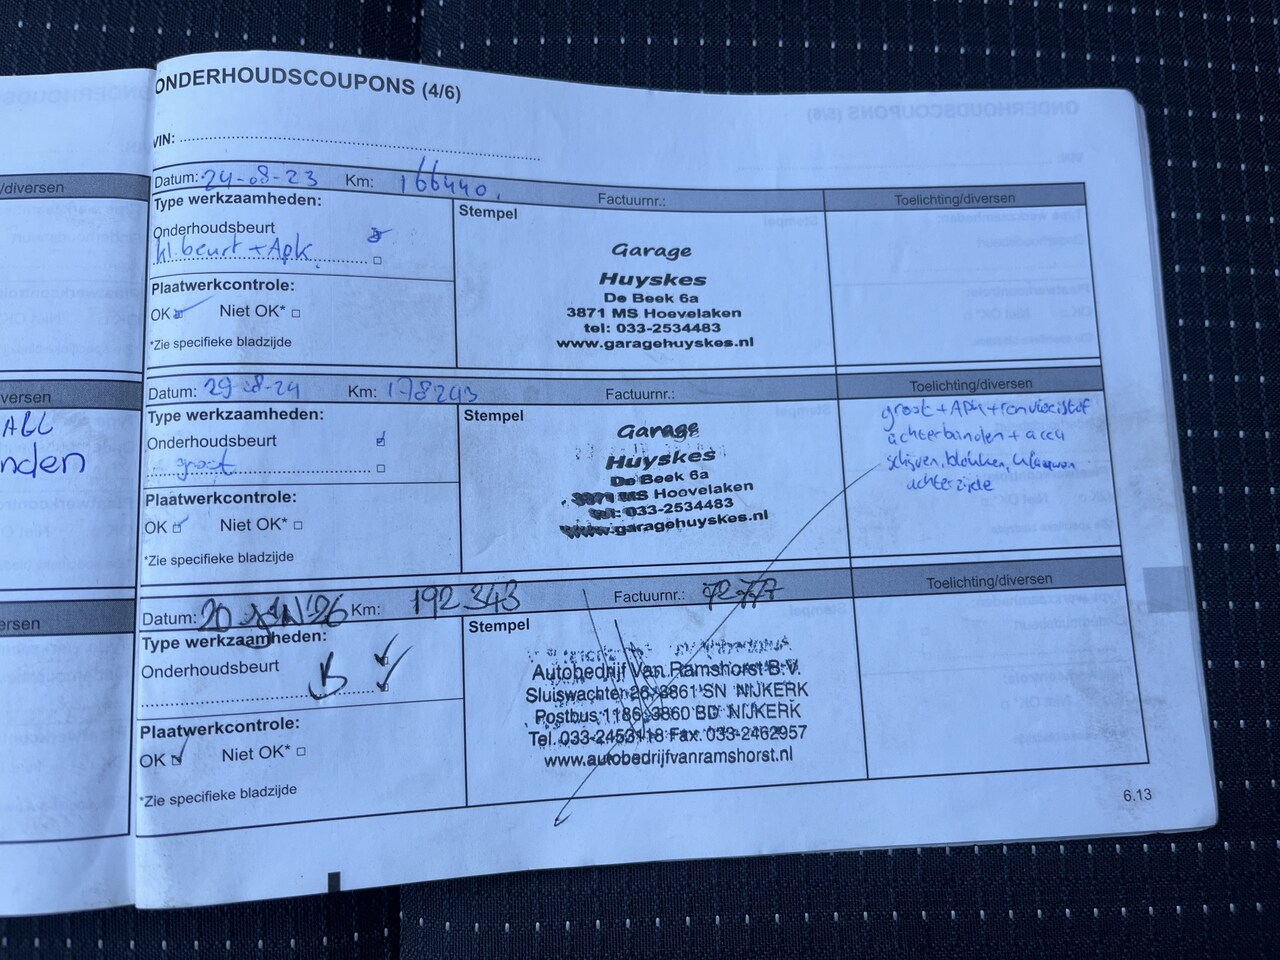 ONDERHOUDSCOUPONS (4/6)
VIN:
Datum: 24-08-23 Km: 166440. Factuurnr.: Toelichting/diversen
Type werkzaamheden:
Stempel
Onderhoudsbeurt
kl. beurt + Apk.
Plaatwerkcontrole:
OK Niet OK*
*Zie specifieke bladzijde
Garage
Huyskes
De Beek 6a
3871 MS Hoevelaken
tel: 033-2534483
www.garagehuyskes.nl
Datum: 29-08-24 Km: 178243 Factuurnr.: Toelichting/diversen
Type werkzaamheden:
Stempel
Onderhoudsbeurt
groot
Plaatwerkcontrole:
OK Niet OK*
*Zie specifieke bladzijde
Garage
Huyskes
De Beek 6a
3871 MS Hoevelaken
tel: 033-2534483
www.garagehuyskes.nl
groot + APK + remvloeistof
achterbanden + accu
schijven, blokken,
achterzijde
Datum: 20 JAN '26 Km: 192.343 Factuurnr.: 72777 Toelichting/diversen
Type werkzaamheden:
Stempel
Onderhoudsbeurt
Plaatwerkcontrole:
OK Niet OK*
*Zie specifieke bladzijde
Autobedrijf Van Ramshorst B.V.
Sluiswachter 26, 3861 SN NIJKERK
Postbus 1186, 3860 BD NIJKERK
Tel. 033-2453118 Fax. 033-2462957
www.autobedrijfvanramshorst.nl
6.13
/diversen
versen
nden
ersen